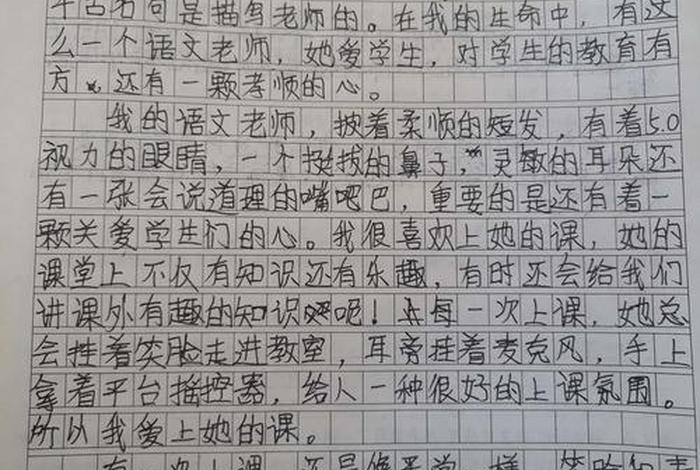 千古名句是描写老师的。在我的生命中，有这
么一个语文老师，她爱学生，对学生的教育有
方，还有一颗孝顺的心。
我的语文老师，披着柔顺的短发，有着5.0
视力的眼睛，一个挺拔的鼻子，灵敏的耳朵还
有一张会说道理的嘴吧巴，重要的是还有着一
颗关爱学生们的心。我很喜欢上她的课，她的
课堂上不仅有知识还有乐趣，有时还会给我们
讲课外有趣的知识呢！每一次上课，她总
会挂着笑脸走进教室，耳旁挂着麦克风，手上
拿着平台摇控器，给人一种很好的上课氛围。
所以我爱上她的课。
有一次上课，还是像平常一样，